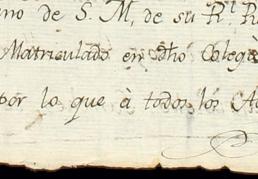 no de S. M, de su Rl. R
Matriculado en dho Colegi
por lo que à todos los